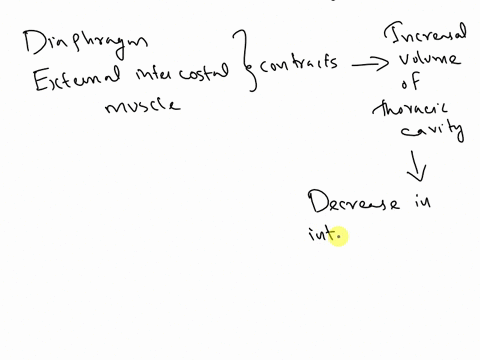 Diaphragm
External intercostal
muscle
contracts
Increased
volume
of
thoracic
cavity
Decrease in
int.